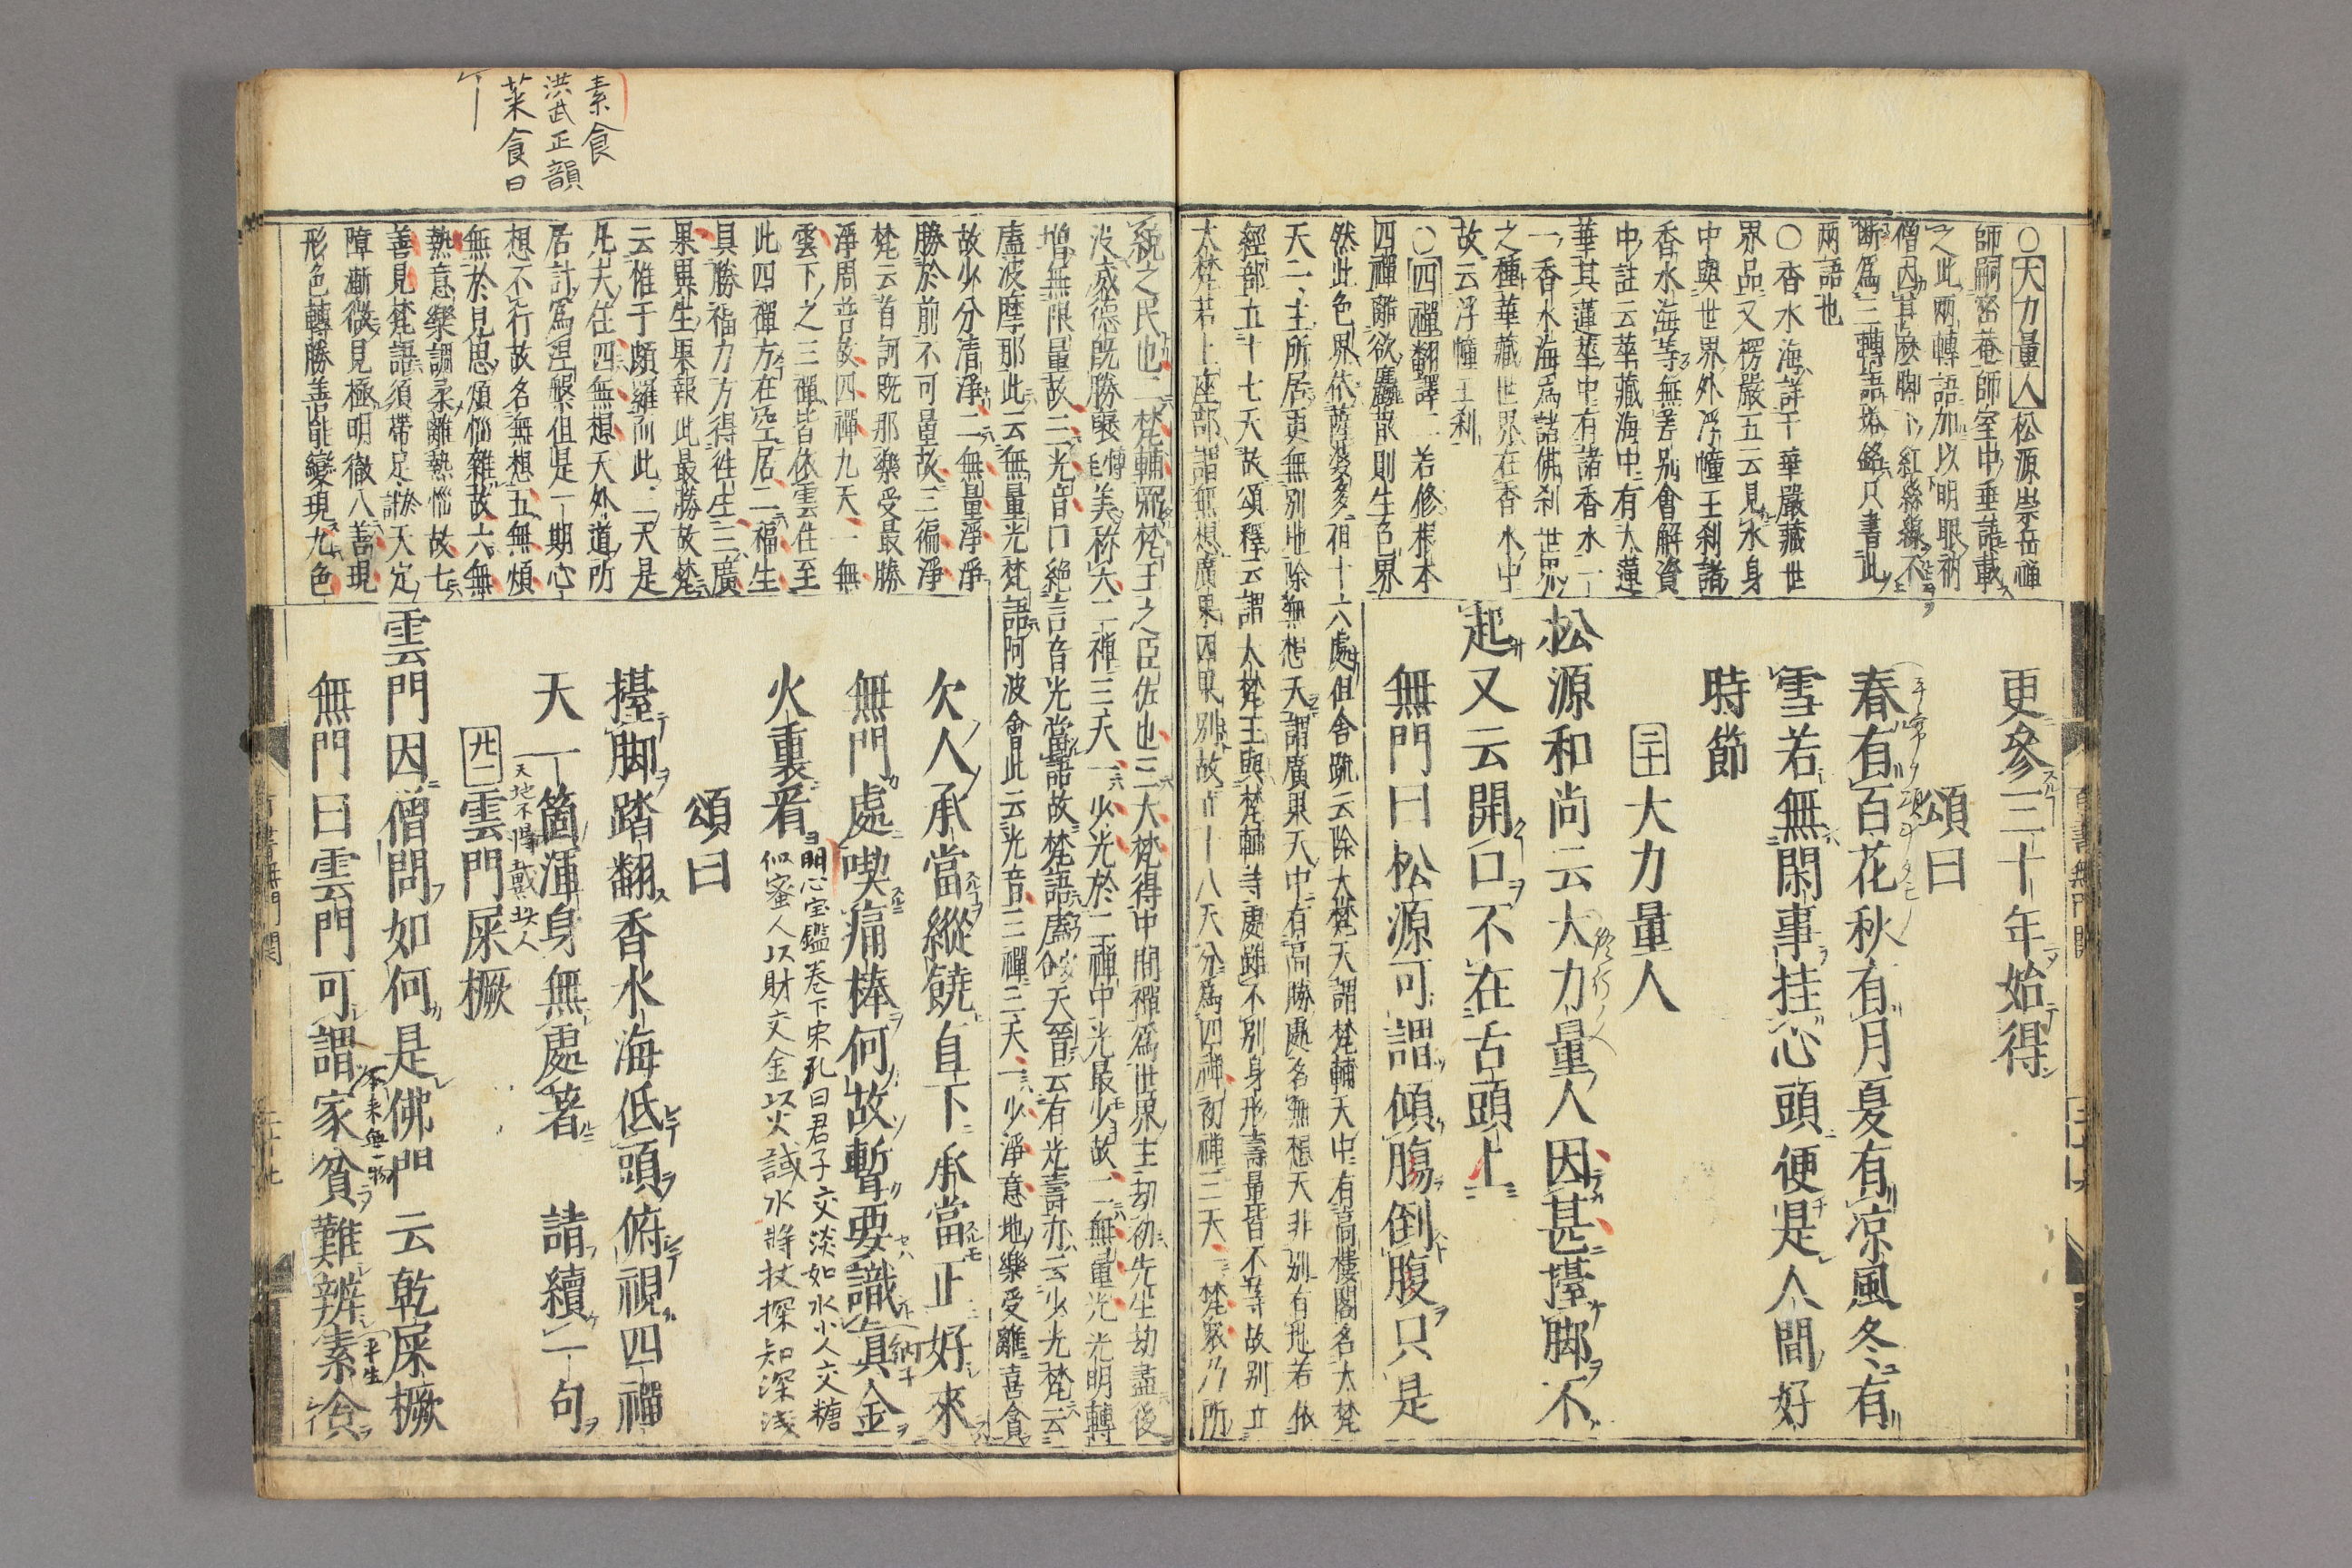 更參三十年始得
頌曰
春有百花秋有月夏有凉風冬有
雪若無閑事挂心頭便是人間好
時節
二十 大力量人
松源和尚云大力量人因甚擡脚不
起又云開口不在舌頭上
無門曰松源可謂傾膓倒腹只是
〇大力量人松源崇岳禪
師嗣密菴師室中垂語載
之此兩轉語加以明眼衲
僧因甚麽脚下紅絲線不
斷爲三轉語塔銘只書此
兩語也
〇香水海詳于華嚴藏世
界品又楞嚴五云見水身
中與世界外浮幢王刹諸
香水海等無差別會解資
中註云華藏海中有大蓮
華其蓮華中有諸香水一
一香水海爲諸佛刹世界
之種華藏世界在香水中
故云浮幢王刹
〇四禪翻譯二若修根本
四禪離欲麤散則生色界
然此色界依薩婆多祖十六處但舍疏云除大梵天謂梵輔天中有高樓閣名大梵
天二主所居更無別地除無想天謂廣果天中有高勝處名無想天非別有地若依
經部五十七天故頌釋云謂大梵王與梵輔等處雖不別身形壽量皆不等故別立
大梵若上座部謂無想廣果因果別故十八天分爲四禪初禪三天一梵衆乃所
統之民也二梵輔乃梵王之臣佐也三大梵得中間禪爲世界主劫初先生劫盡後
没威德既勝襃博美称大二禪三天一少光於二禪中光最少故二無量光光明轉
增無限量故三光音口絶言音光當語故梵語廅天晉云有光壽亦云少光梵云
廅波摩那此云無量光梵語阿波會此云光音三禪三天一少淨意地樂受離喜貪
故少分清淨二無量淨淨
勝於前不可量故三徧淨
梵云首訶既那樂受最勝
淨周普故四禪九天一無
雲下之三禪皆依雲住至
此四禪方在空居二福生
具勝福力方得徃生三廣
果異生果報此最勝故梵
云惟于頗羅而此二天是
凡夫住四無想天外道所
居計爲涅槃但是一期心
想不行故名無想五無煩
無於見思煩惱雜故六無
熱意樂調柔離熱惱故七
善見梵語須帶足於定
障漸微見極明徹八善現
形色轉勝善能變現九色
欠人承當縱饒直下承當正好來
無門處喫痛棒何故暫要識眞金
火裏看
明心宝鑑卷下宋孔曰君子交淡如水小人交糖
似蜜人以財交金以火試水將杖探知深浅
頌曰
擡脚踏翻香水海低頭俯視四禪
天一箇渾身無處著 請續一句
天地不得載此人
廿一 雲門屎橛
雲門因僧問如何是佛門云乾屎橛
本来無一物
無門曰雲門可謂家貧難辨素食
平生
素食
洪武正韻
菜食曰